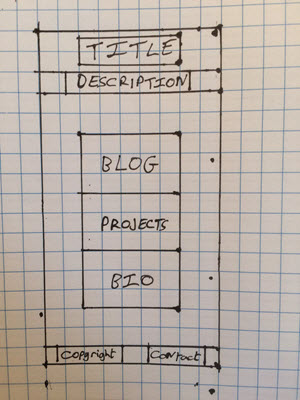 TITLE
DESCRIPTION
BLOG
PROJECTS
BIO
Copyright Contact